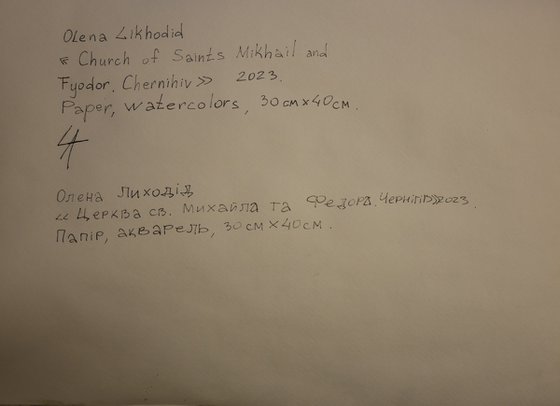 Olena Likhodid
« Church of Saints Mikhail and
Fyodor. Chernihiv» 2023.
Paper, watercolors, 30см×40см.
Олена Лиходід
«Церква св. Михайла та Федора. Чернігів»2023.
Папір, акварель, 30см×40см.